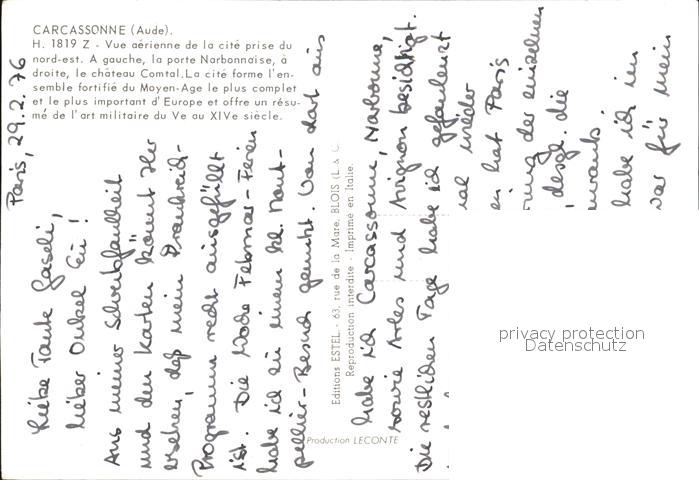 CARCASSONNE (Aude).
H. 1819 Z - Vue aérienne de la cité prise du
nord-est. A gauche, la porte Narbonnaise, à
droite, le château Comtal. La cité forme l'en-
semble fortifié du Moyen-Age le plus complet
et le plus important d'Europe et offre un résu-
mé de l'art militaire du Ve au XIVe siècle.
Paris, 29.2.76
Liebe Tante
lieber Onkel
Aus meiner Schreibfaulheit
und den Karten könnt Ihr
ersehen, daß mein Frankreich-
Programm recht ausgefüllt
ist. Die Woche Februar-Ferien
habe ich zu einem kl. Mont-
pellier-Besuch genutzt. Von dort aus
Editions ESTEL - 63, rue de la Mare, BLOIS (L. & C.
Reproduction interdite - Imprimé en Italie.
Production LECONTE
habe ich Carcassonne, Narbonne,
sowie Arles und Avignon besichtigt.
Die restlichen Tage habe ich gefaulenzt
wieder
hat Paris
der einzelnen
desgl. die
habe ich im
war für mein
privacy protection
Datenschutz